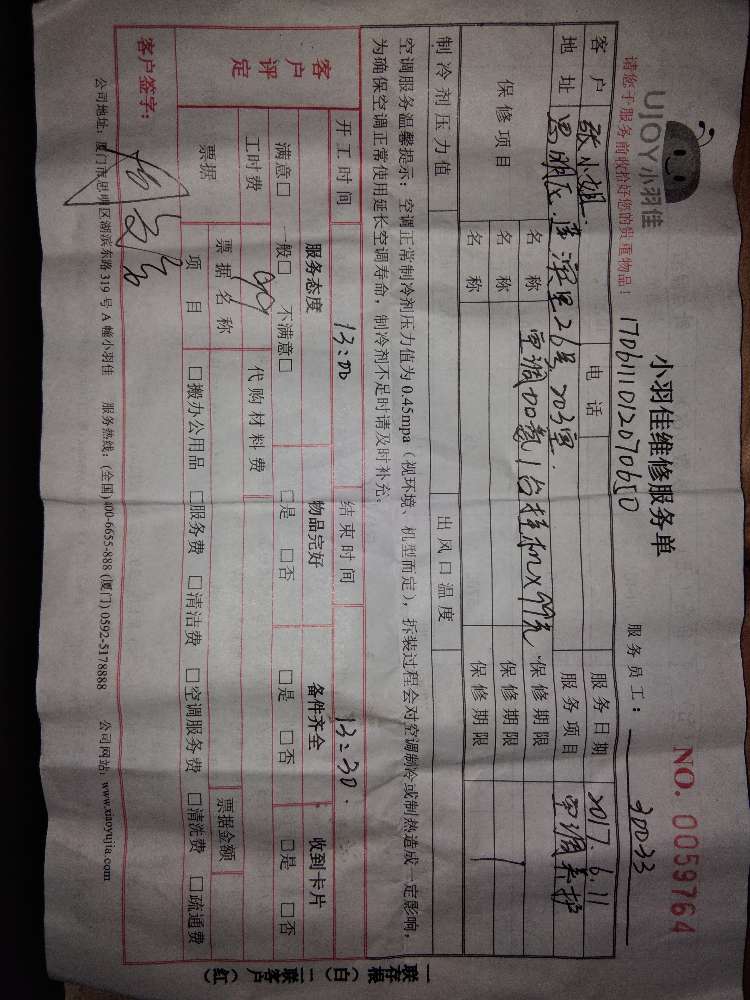 UJOY小羽佳
小羽佳维修服务单
NO. 0059764
请您于服务前收拾好您的贵重物品！
170611012070650
服务员工：30033
客户 张小姐 电话 服务日期 2017.6.11
地址 思明区 滨里26号203室. 服务项目 空调养护
保修项目 名称 空调加氨1台挂机×99元. 保修期限
名称 保修期限
名称 保修期限
制冷剂压力值 出风口温度
空调服务温馨提示：空调正常制冷剂压力值为0.45mpa（视环境、机型而定），拆装过程会对空调制冷或制热造成一定影响，
为确保空调正常使用延长空调寿命，制冷剂不足时请及时补充。
开工时间 13:00 结束时间 13:30.
客户评定
服务态度 物品完好 备件齐全 收到卡片
满意□ 一般□ 不满意□ □是 □否 □是 □否 □是 □否
工时费 99 代购材料费
票据 票据名称 票据金额
项目 □搬办公用品 □服务费 □清洁费 □空调服务费 □清洗费 □疏通费
客户签字：
公司地址：厦门市思明区湖滨东路319号A幢小羽佳 服务热线：(全国)400-6655-888 (厦门) 0592-5178888 公司网站：www.xiaoyujia.com
一联存根（白）二联客户（红）